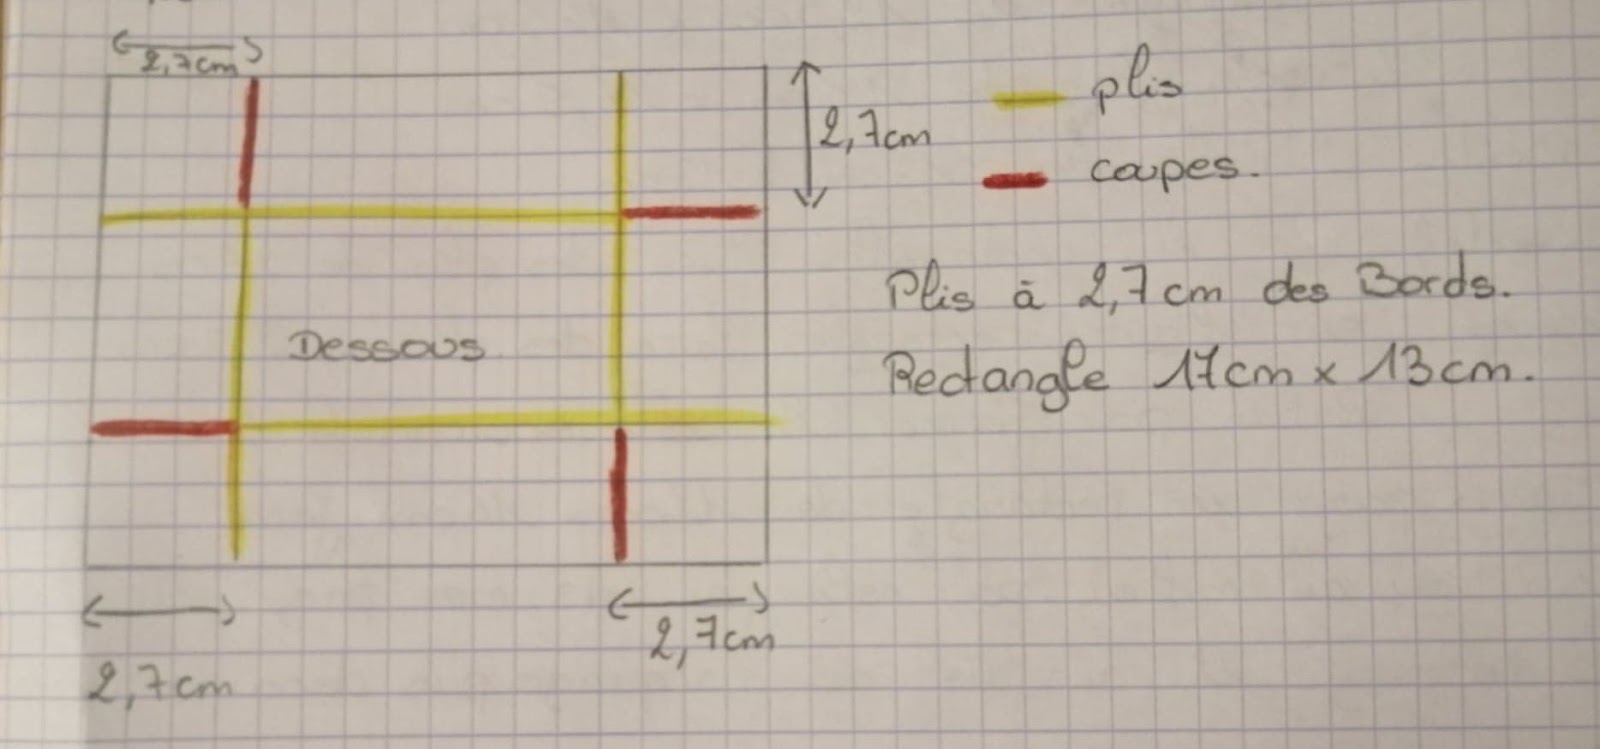 2,7cm
plis
2,7cm
coupes.
Plis à 2,7cm des Bords.
Dessous
Rectangle 17cm x 13cm.
2,7cm
2,7cm